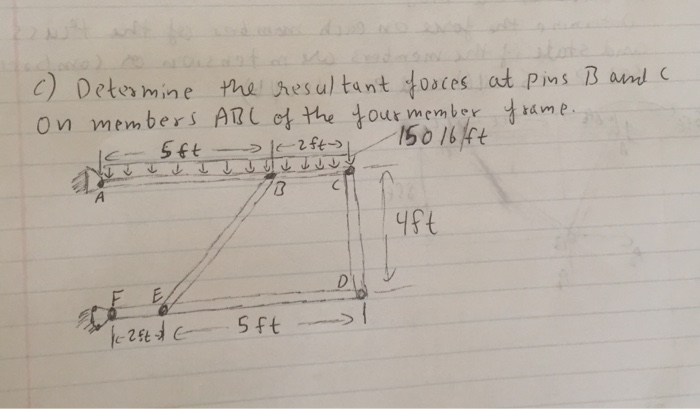 C) Determine the resultant forces at pins B and C
on members ABC of the four member frame.
5ft 2ft 150 lb/ft
A B C
4ft
F E D
2ft 5ft